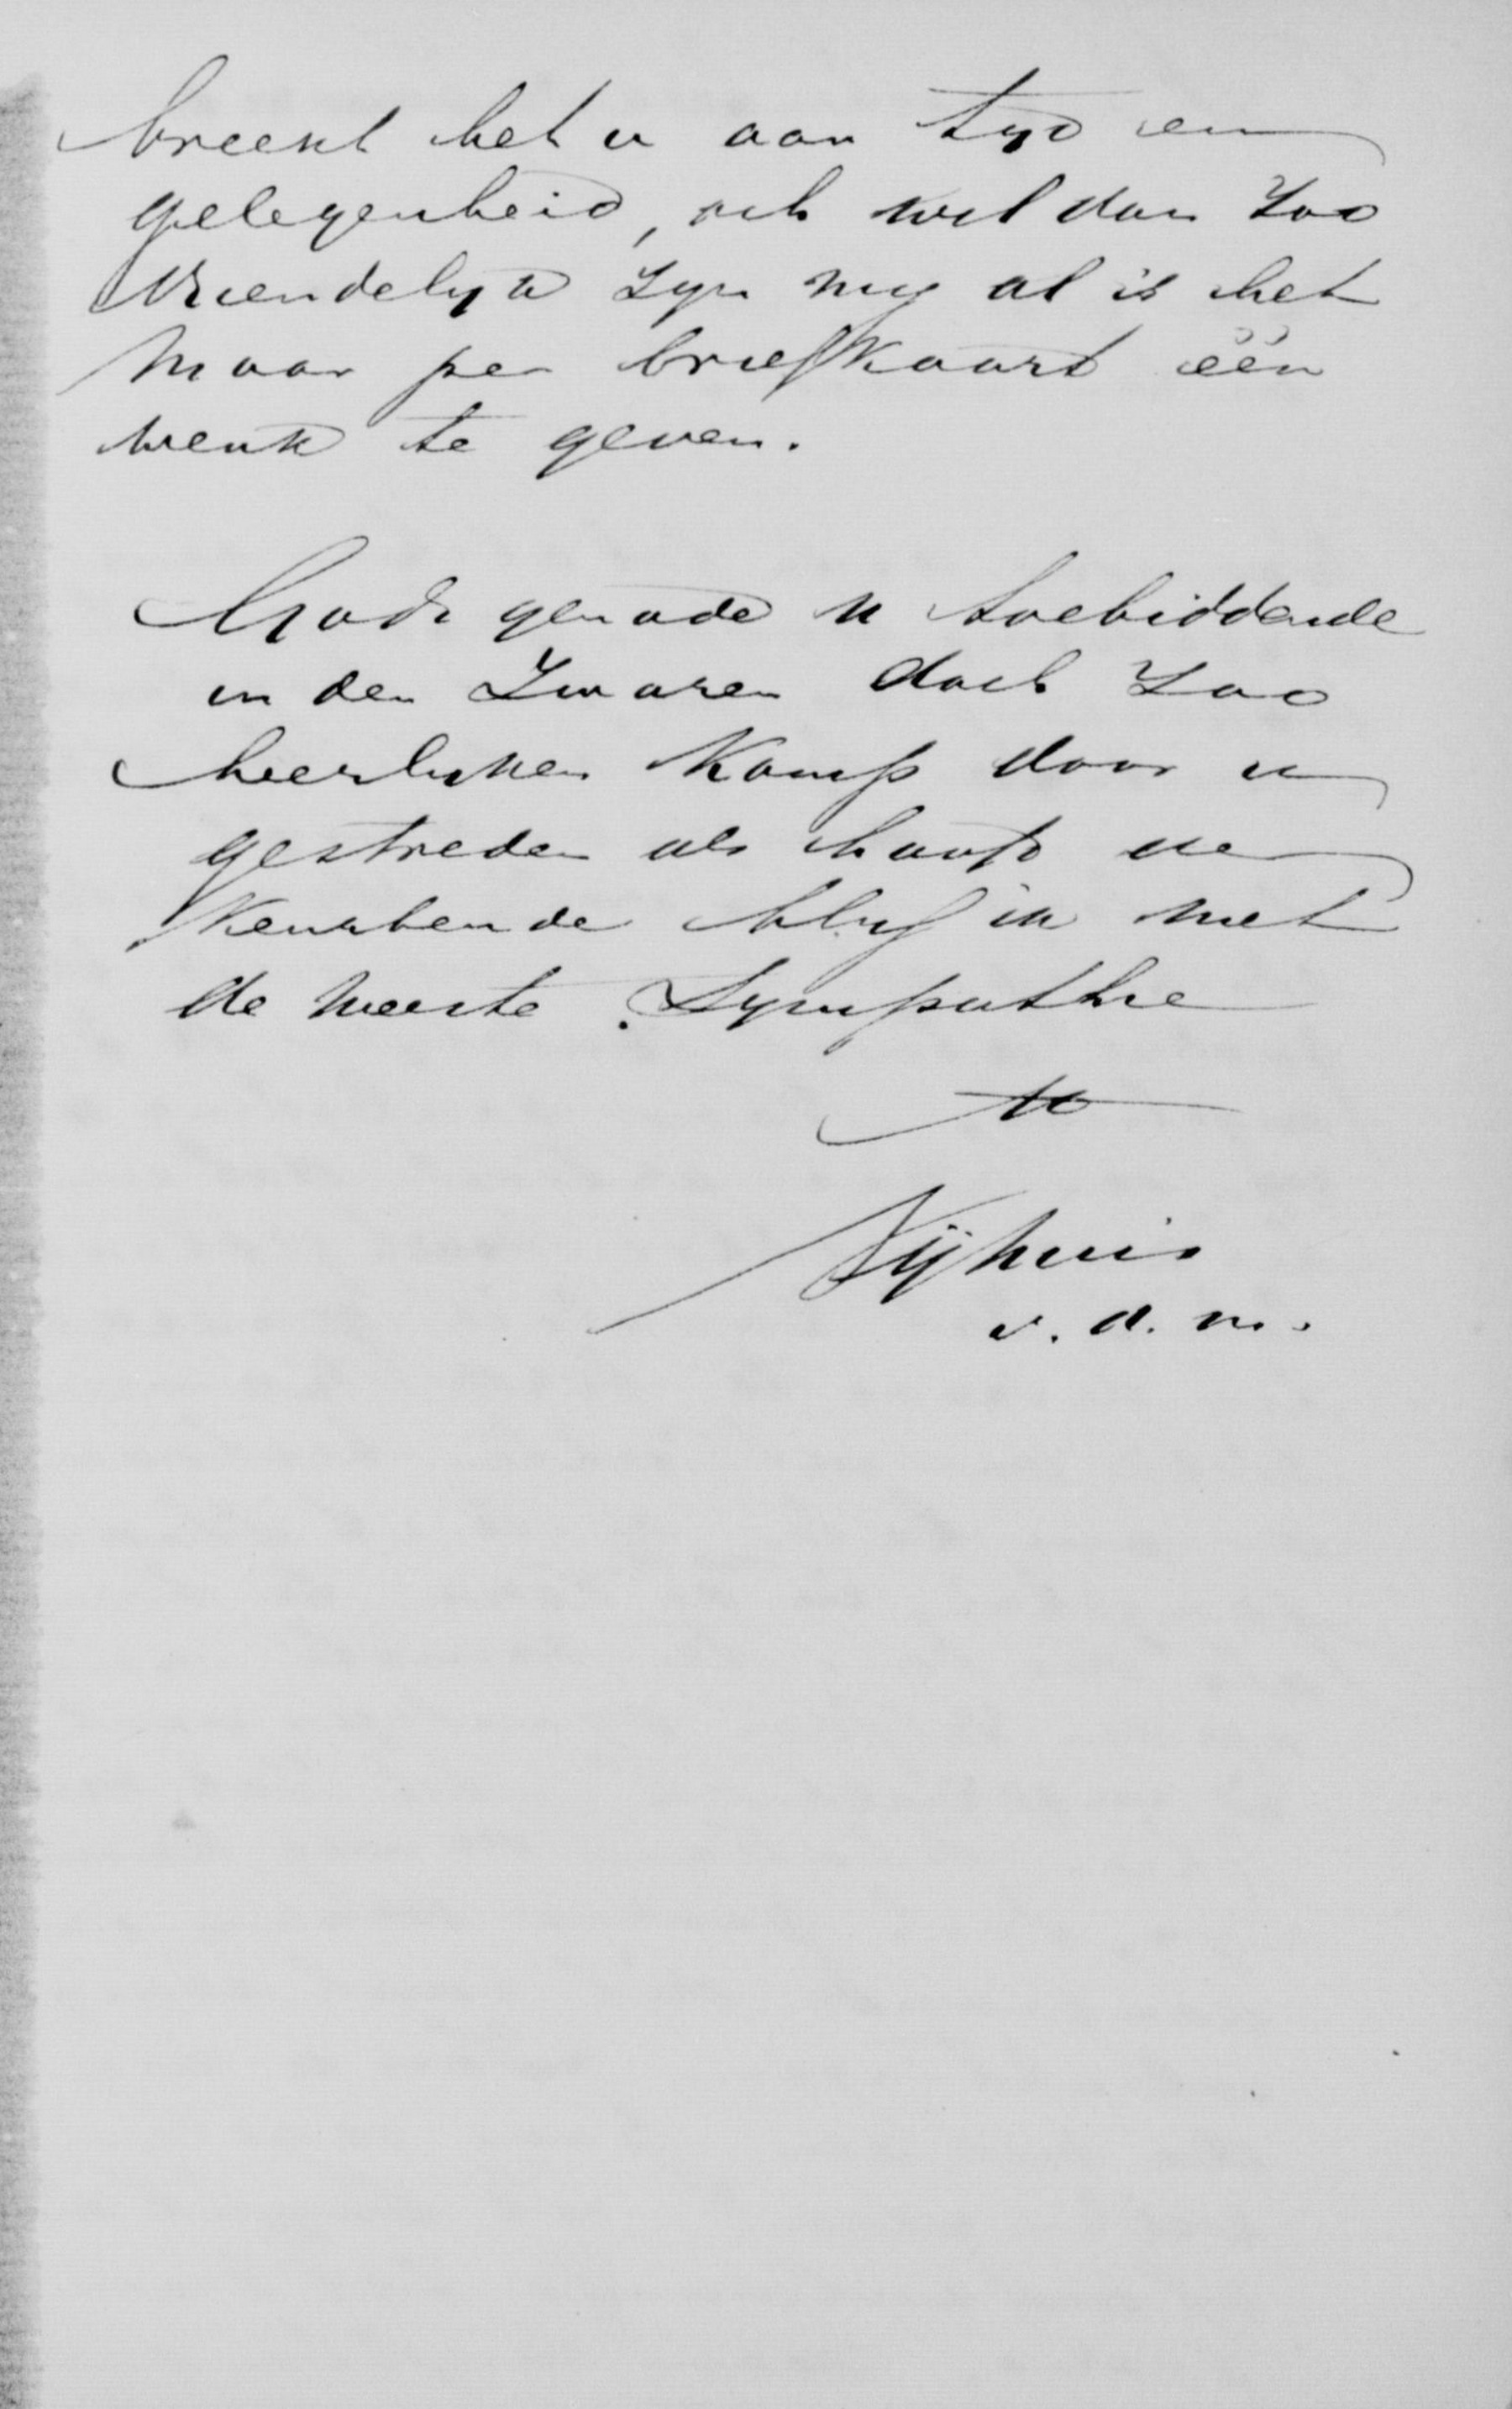 breekt het u aan tyd en
gelegenheid, och wil dan zoo
vriendelyk zyn my al is het
maar per briefkaart één
wenk te geven.
Gods genade u toebiddende
in den zwaren doch zoo
heerlyken kamp door u
gestreden als hoofd
blyf ik met
de meeste Sympathie
Nijhuis
v. d. m.